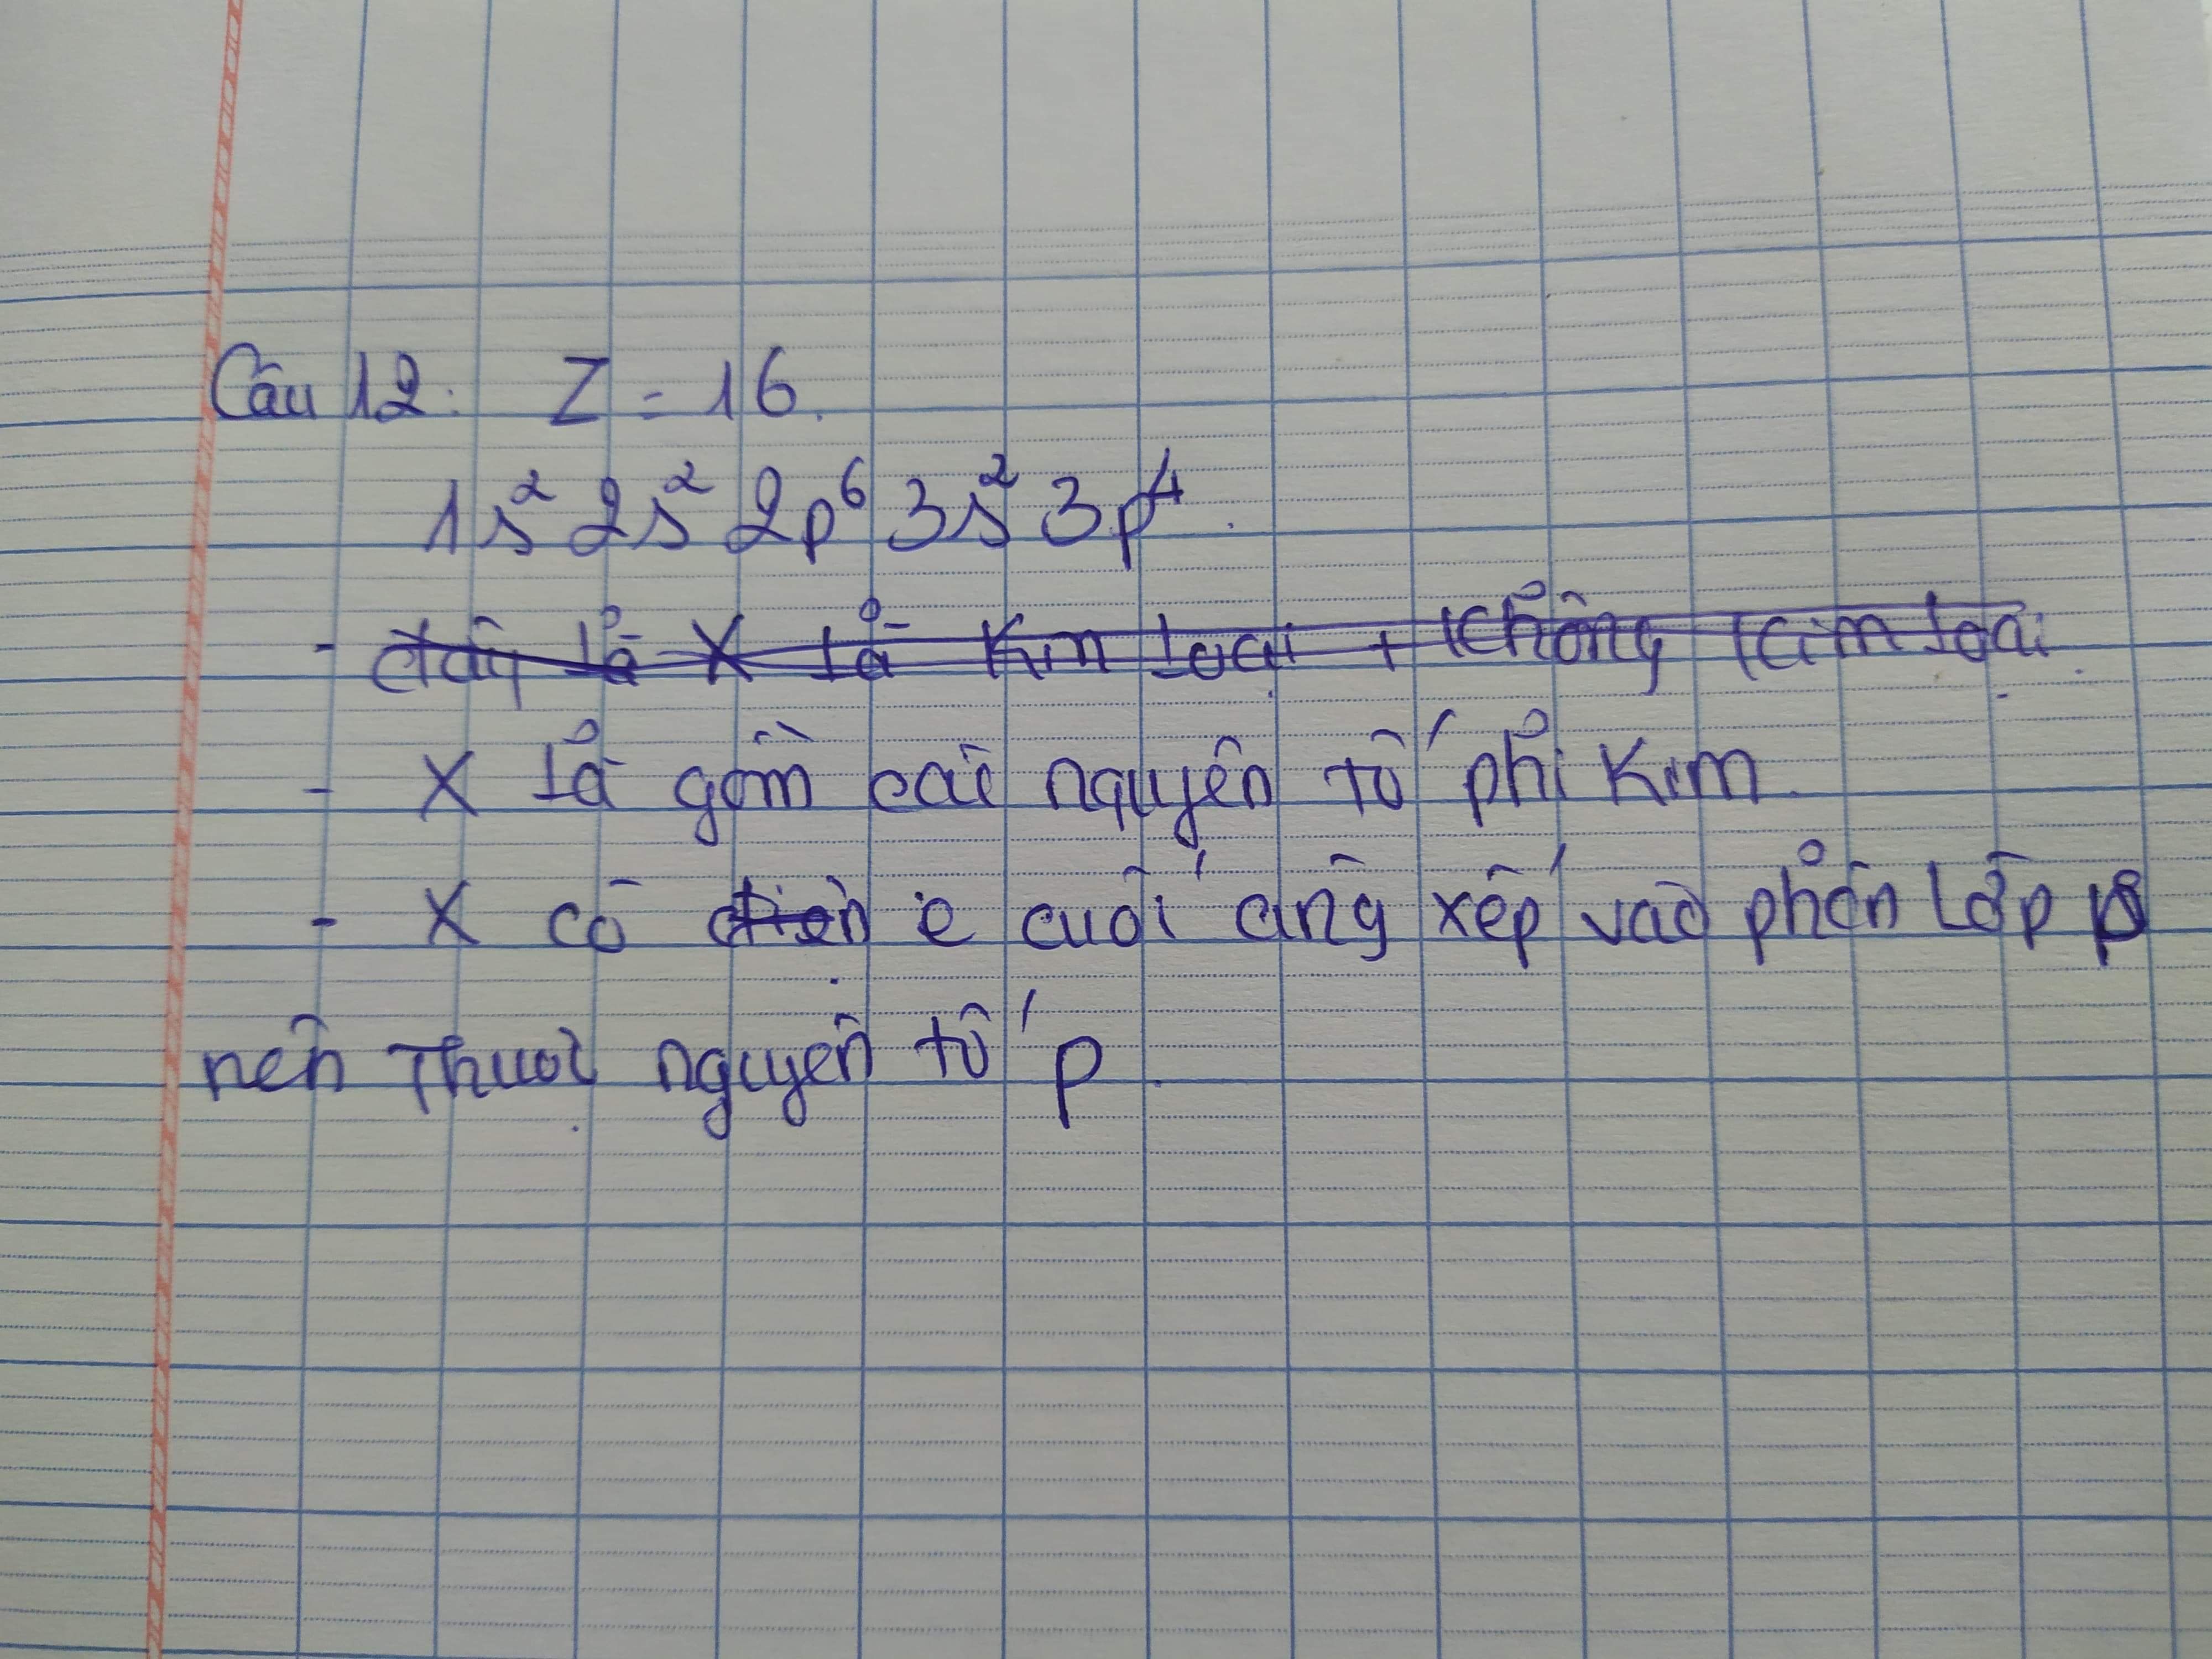 Câu 12: Z = 16.
1s² 2s² 2p⁶ 3s² 3p⁴.
- đây là X là Kim loại + không kim loại.
- X là gồm các nguyên tố phi Kim.
- X có điện e cuối cùng xếp vào phân lớp p
nên Thuộc nguyên tố p.